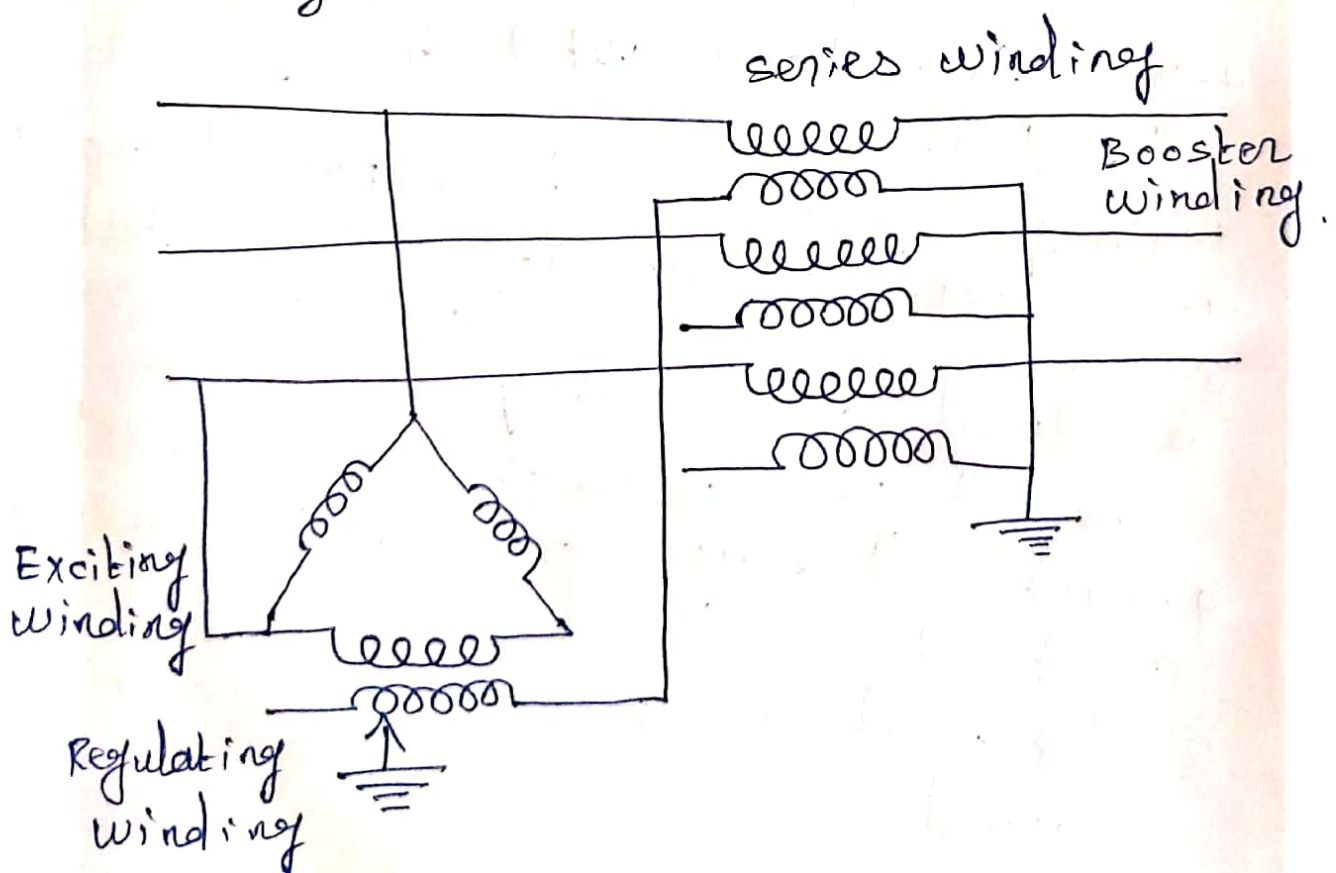 series winding
Booster
winding.
Exciting
winding
Regulating
winding